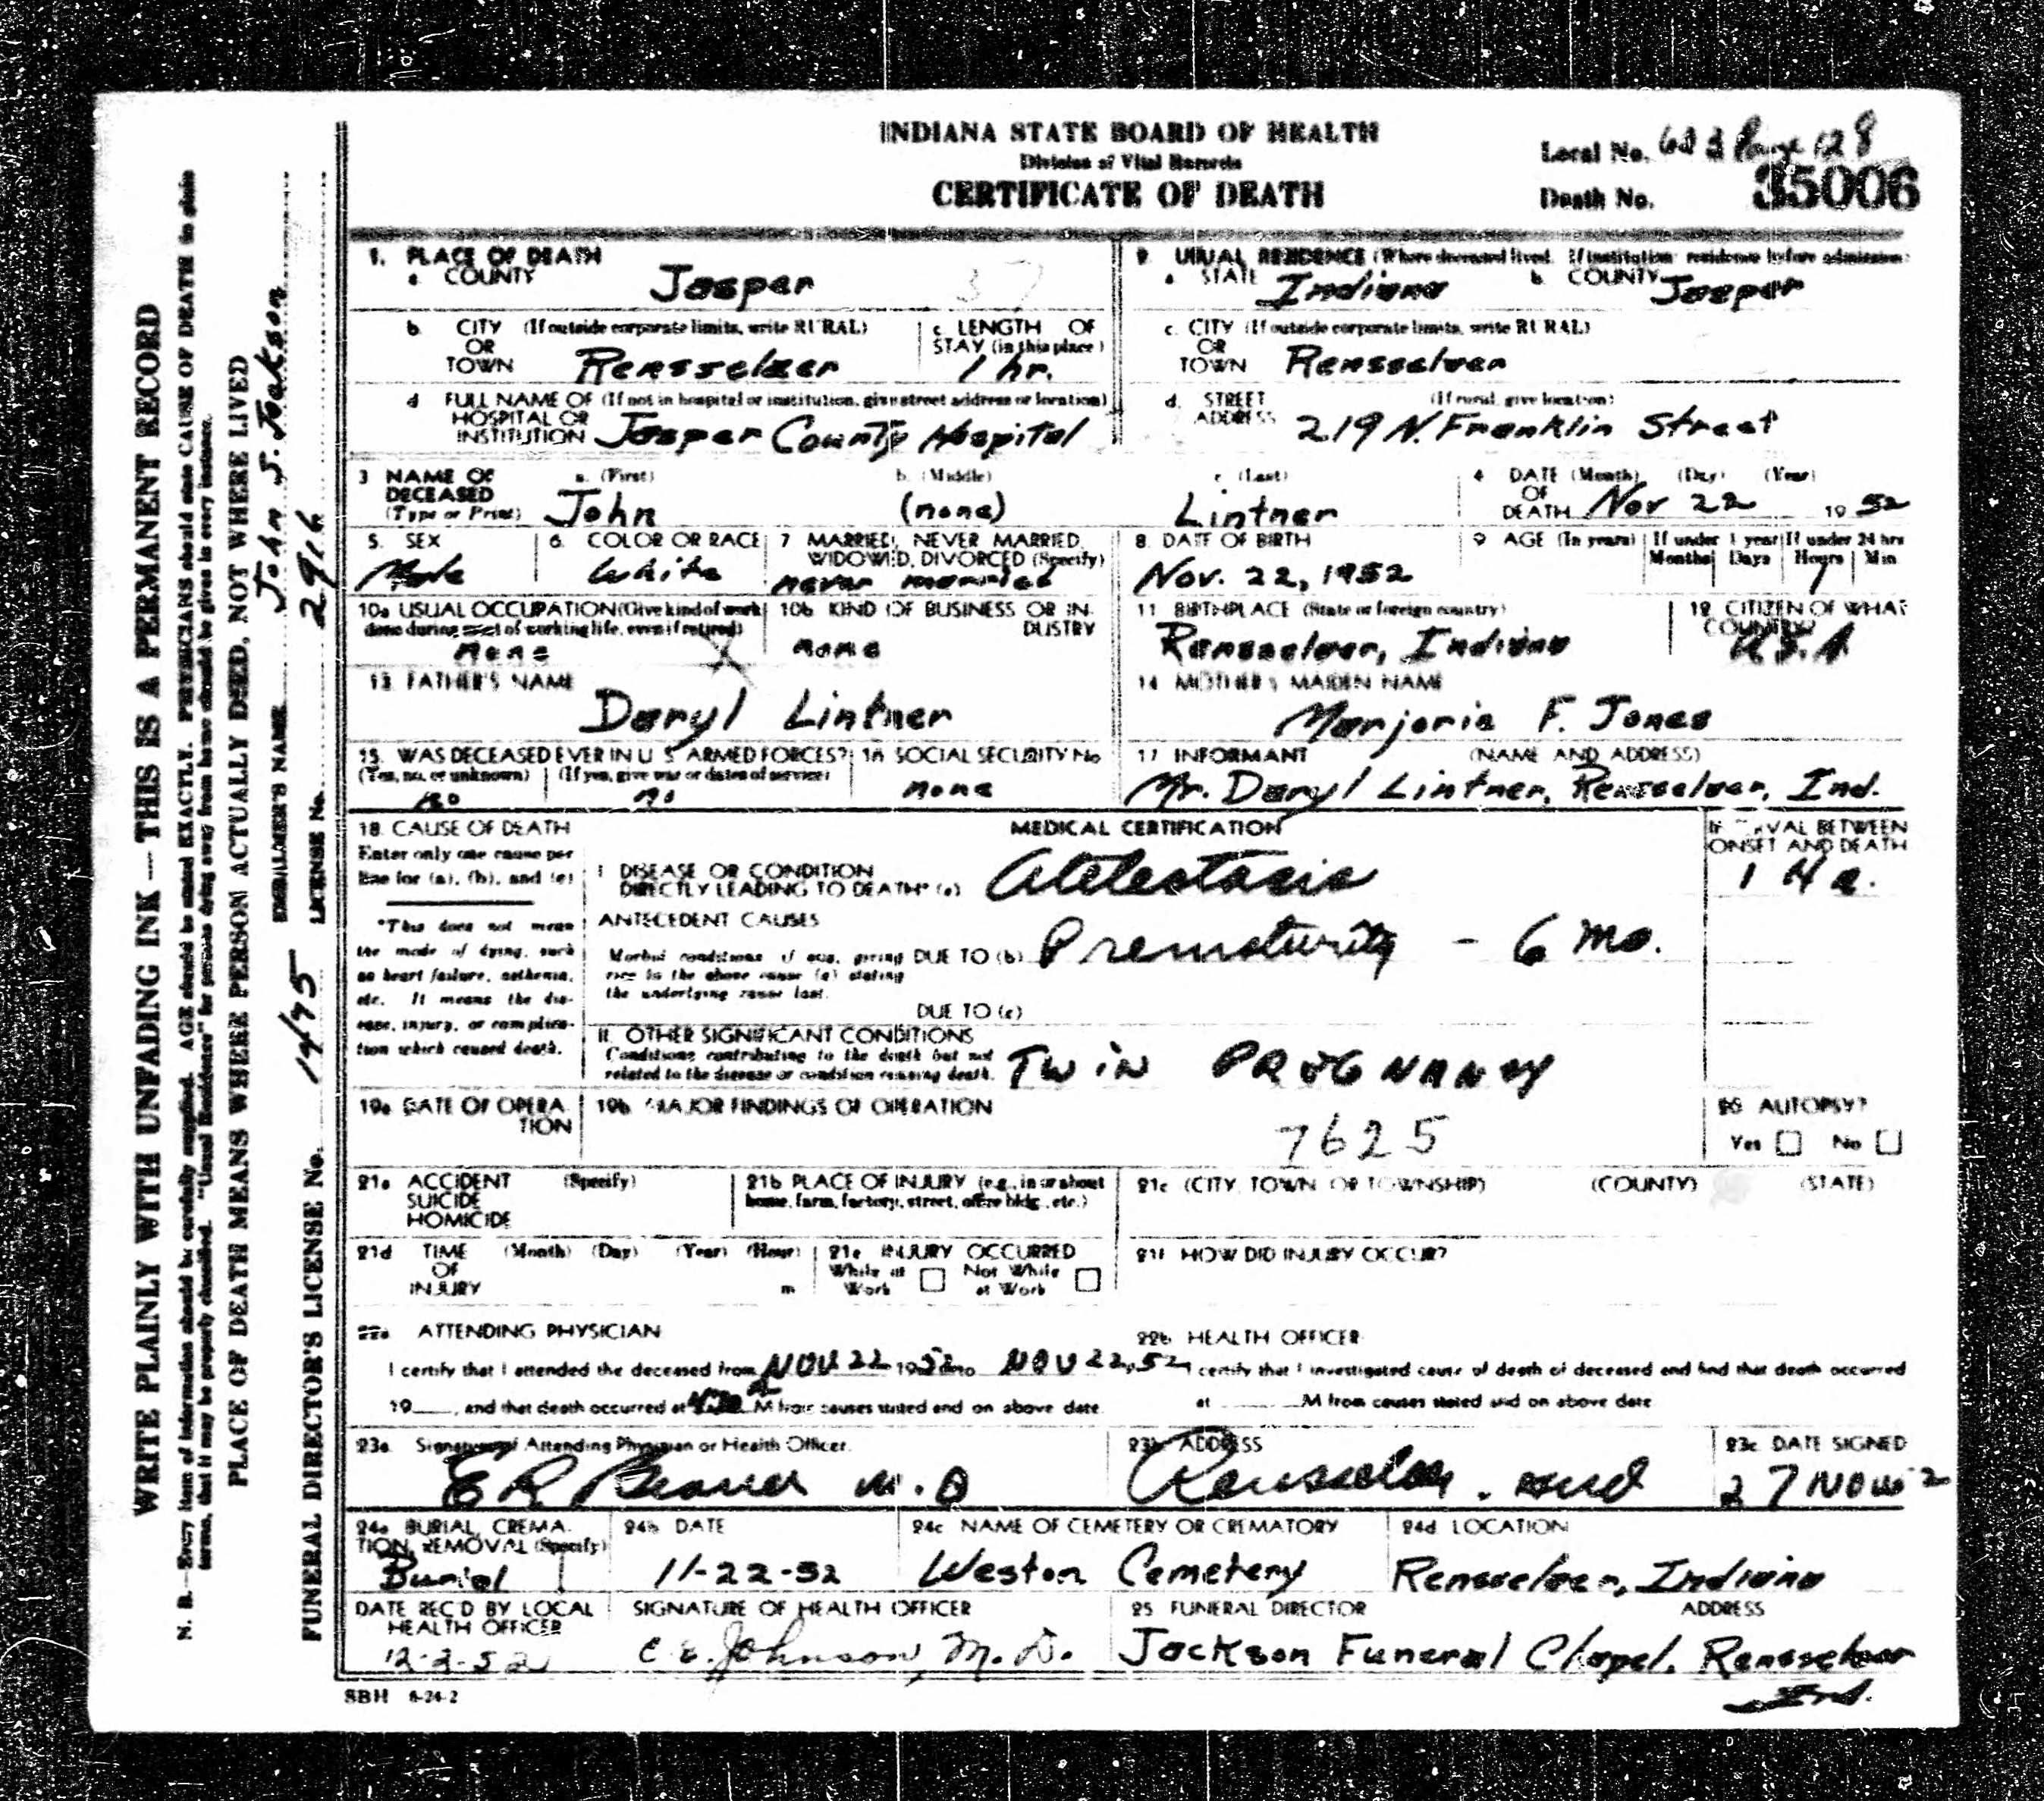 INDIANA STATE BOARD OF HEALTH
Division of Vital Records
CERTIFICATE OF DEATH
Local No. Page 128
Death No. 35006
1. PLACE OF DEATH
a COUNTY Jasper 37
b. CITY (If outside corporate limits, write RURAL)
OR
TOWN Rensselaer
c. LENGTH OF
STAY (in this place)
1 hr.
d FULL NAME OF (If not in hospital or institution, give street address or location)
HOSPITAL OR
INSTITUTION Jasper County Hospital
2 USUAL RESIDENCE (Where deceased lived. If institution: residence before admission)
a STATE Indiana b COUNTY Jasper
c. CITY (If outside corporate limits, write RURAL)
OR
TOWN Rensselaer
d. STREET (If rural, give location)
ADDRESS 219 N. Franklin Street
3 NAME OF
DECEASED
(Type or Print)
a. (First) b. (Middle) c. (Last)
John (none) Lintner
4 DATE (Month) (Day) (Year)
OF
DEATH Nov 22 1952
5. SEX
Male
6. COLOR OR RACE
White
7 MARRIED, NEVER MARRIED,
WIDOWED, DIVORCED (Specify)
never married
8. DATE OF BIRTH
Nov. 22, 1952
9 AGE (In years) If under 1 year If under 24 hrs
Months Days Hours Min
1
10a USUAL OCCUPATION (Give kind of work
done during most of working life, even if retired)
none
10b KIND OF BUSINESS OR IN-
DUSTRY
none
11 BIRTHPLACE (State or foreign country)
Rensselaer, Indiana
12 CITIZEN OF WHAT
COUNTRY?
U.S.A
13 FATHER'S NAME
Daryl Lintner
14 MOTHER'S MAIDEN NAME
Marjorie F. Jones
15. WAS DECEASED EVER IN U. S. ARMED FORCES?
(Yes, no, or unknown) (If yes, give war or dates of service)
no no
16 SOCIAL SECURITY No
none
17 INFORMANT (NAME AND ADDRESS)
Mr. Daryl Lintner, Rensselaer, Ind.
18. CAUSE OF DEATH
Enter only one cause per
line for (a), (b), and (c)
*This does not mean
the mode of dying, such
as heart failure, asthenia,
etc. It means the dis-
ease, injury, or complica-
tion which caused death.
MEDICAL CERTIFICATION
INTERVAL BETWEEN
ONSET AND DEATH
I DISEASE OR CONDITION
DIRECTLY LEADING TO DEATH* (a) Atelectasis
1 Hr.
ANTECEDENT CAUSES
Morbid conditions, if any, giving
rise to the above cause (a) stating
the underlying cause last.
DUE TO (b) Prematurity - 6 mo.
DUE TO (c)
II. OTHER SIGNIFICANT CONDITIONS
Conditions contributing to the death but not
related to the disease or condition causing death.
TWIN PREGNANCY
19a DATE OF OPERA-
TION
19b MAJOR FINDINGS OF OPERATION
7625
20 AUTOPSY?
Yes No
21a ACCIDENT (Specify)
SUICIDE
HOMICIDE
21b PLACE OF INJURY (e.g., in or about
home, farm, factory, street, office bldg., etc.)
21c (CITY, TOWN, OR TOWNSHIP) (COUNTY) (STATE)
21d TIME (Month) (Day) (Year) (Hour)
OF
INJURY m
21e INJURY OCCURRED
While at Not While
Work at Work
21f HOW DID INJURY OCCUR?
22a ATTENDING PHYSICIAN
I certify that I attended the deceased from NOV 22 1952 to NOV 22, 52
19___, and that death occurred at M from causes stated and on above date
22b HEALTH OFFICER
I certify that I investigated cause of death of deceased and find that death occurred
at M from causes stated and on above date
23a Signature of Attending Physician or Health Officer.
E R Beaver M.D
23b ADDRESS
Rensselaer, Ind
23c DATE SIGNED
27 Nov 52
24a BURIAL, CREMA-
TION, REMOVAL (Specify)
Burial
24b DATE
11-22-52
24c NAME OF CEMETERY OR CREMATORY
Weston Cemetery
24d LOCATION
Rensselaer, Indiana
DATE REC'D BY LOCAL
HEALTH OFFICER
12-2-52
SIGNATURE OF HEALTH OFFICER
C E. Johnson, M. D.
25 FUNERAL DIRECTOR ADDRESS
Jackson Funeral Chapel. Rensselaer
Ind.
SBH 6-24-2
WRITE PLAINLY WITH UNFADING INK—THIS IS A PERMANENT RECORD
N. B.—Every item of information should be carefully supplied. AGE should be stated EXACTLY. PHYSICIANS should state CAUSE OF DEATH in plain
terms, that it may be properly classified. "Usual Residence" for persons dying away from home should be given in every instance.
PLACE OF DEATH MEANS WHERE PERSON ACTUALLY DIED, NOT WHERE LIVED
EMBALMER'S NAME John S. Jackson
FUNERAL DIRECTOR'S LICENSE No. 1475 LICENSE No. 2916